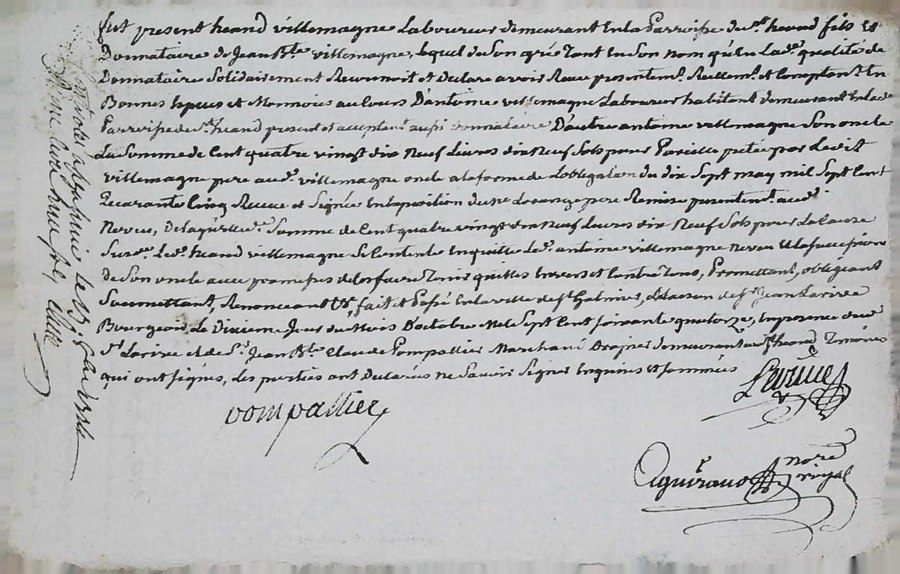 fut present heand villemagne Laboureur demeurant En la Parroisse de st. heand fils Et
Donnataire de Jean Bte. villemagne, lequel de Son gré tant en Son nom qu'en lad. qualité de
Donnataire Solidairement Reconnoit et Declare avoir Receu presentemt. Reellemt. et Comptant En
Bonnes Especes et Monnoies au Cours D'antoine villemagne Laboureur habitant demeurant En lad.
Parroisse de st. heand present et acceptant aussi Donnataire D'autre antoine villemagne Son oncle
La Somme de Cent quatre vingt dix Neuf Livres dix Neuf Sols pour Pareille pretée par Ledit
villemagne pere aud. villemagne oncle a la forme de L'obligation du dix Sept may mil Sept Cent
Quarante Cinq Receue et Signée
Neveu, De laquelle. Somme de Cent quatre vingt dix Neuf Livres dix Neuf Sols pour La Cause
Susd. Led. heand villemagne Se Contente En quitte Led. antoine villemagne neveu
De Son oncle avec promesse de les faire Tenir quittes Envers et Contre Tous, Promettant, obligeant
Soumettant, Renonceant &, fait et Passé En la ville de st. Galmier, Maison de Sr. Jean Larivee
Bourgeois, Le Dixieme Jour du Mois D'octobre Mil Sept Cent Soixante quatorze, En presence dud.
Sr. Larivee et de Sr. Jean Bte. Claude Pompallier Marchand Drapier demeurant aud. st. heand Temoins
qui ont signés, Les parties ont Declarées ne Savoir Signer Enquises et Sommées
pompallier
Larivee
Aguiraud
nore.
royal